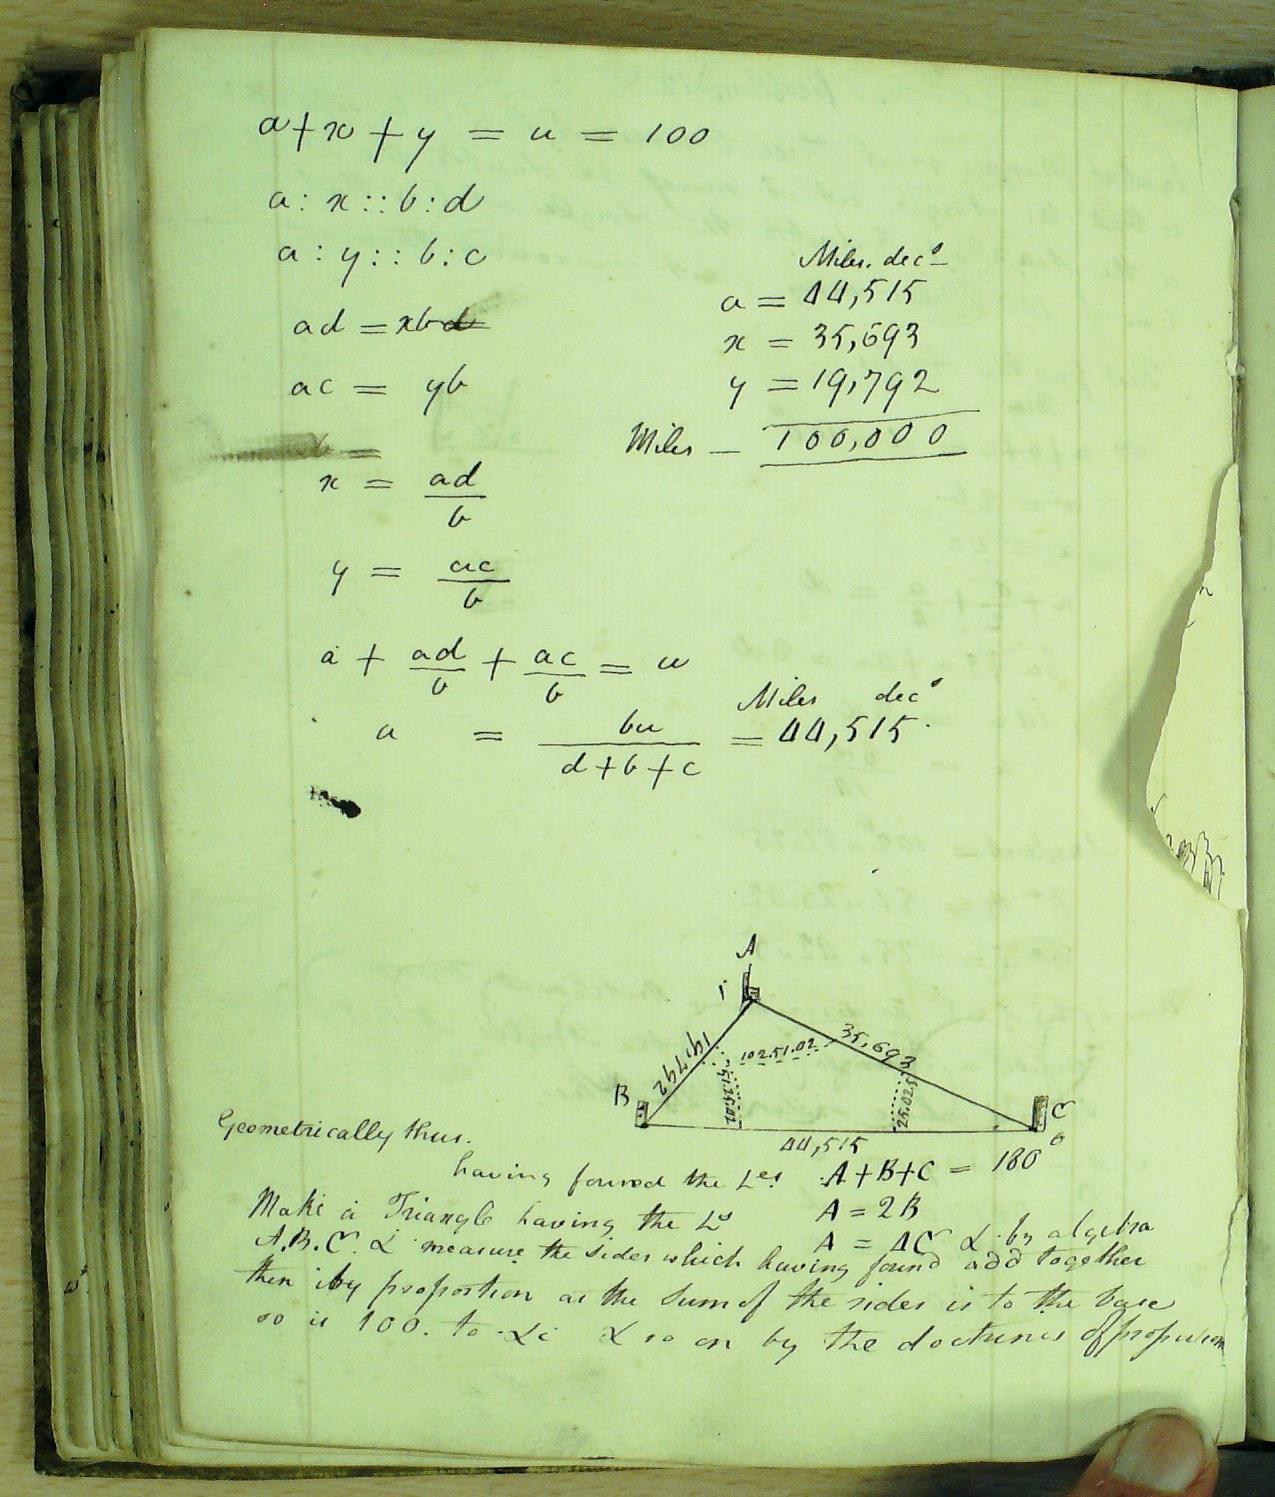 a + x + y = u = 100
a : x :: b : d
a : y :: b : c
ad = xb
ac = yb
x = ad/b
y = ac/b
a + ad/b + ac/b = u
a = bu/d+b+c = 44,515
Miles decs
Miles. decs
a = 44,515
x = 35,693
y = 19,792
Miles — 100,000
A
B
C
19,792
102.51.02
35,693
51.25.02
25.02.5
44,515
Geometrically thus.
having found the Les A+B+C = 180°
A = 2B
A = 4C & by algebra
Make a Triangle having the Ls
A.B.C. & measure the sides which having found add together
then by proportion as the Sum of the sides is to the base
so is 100. to &c & so on by the doctrines of proportion